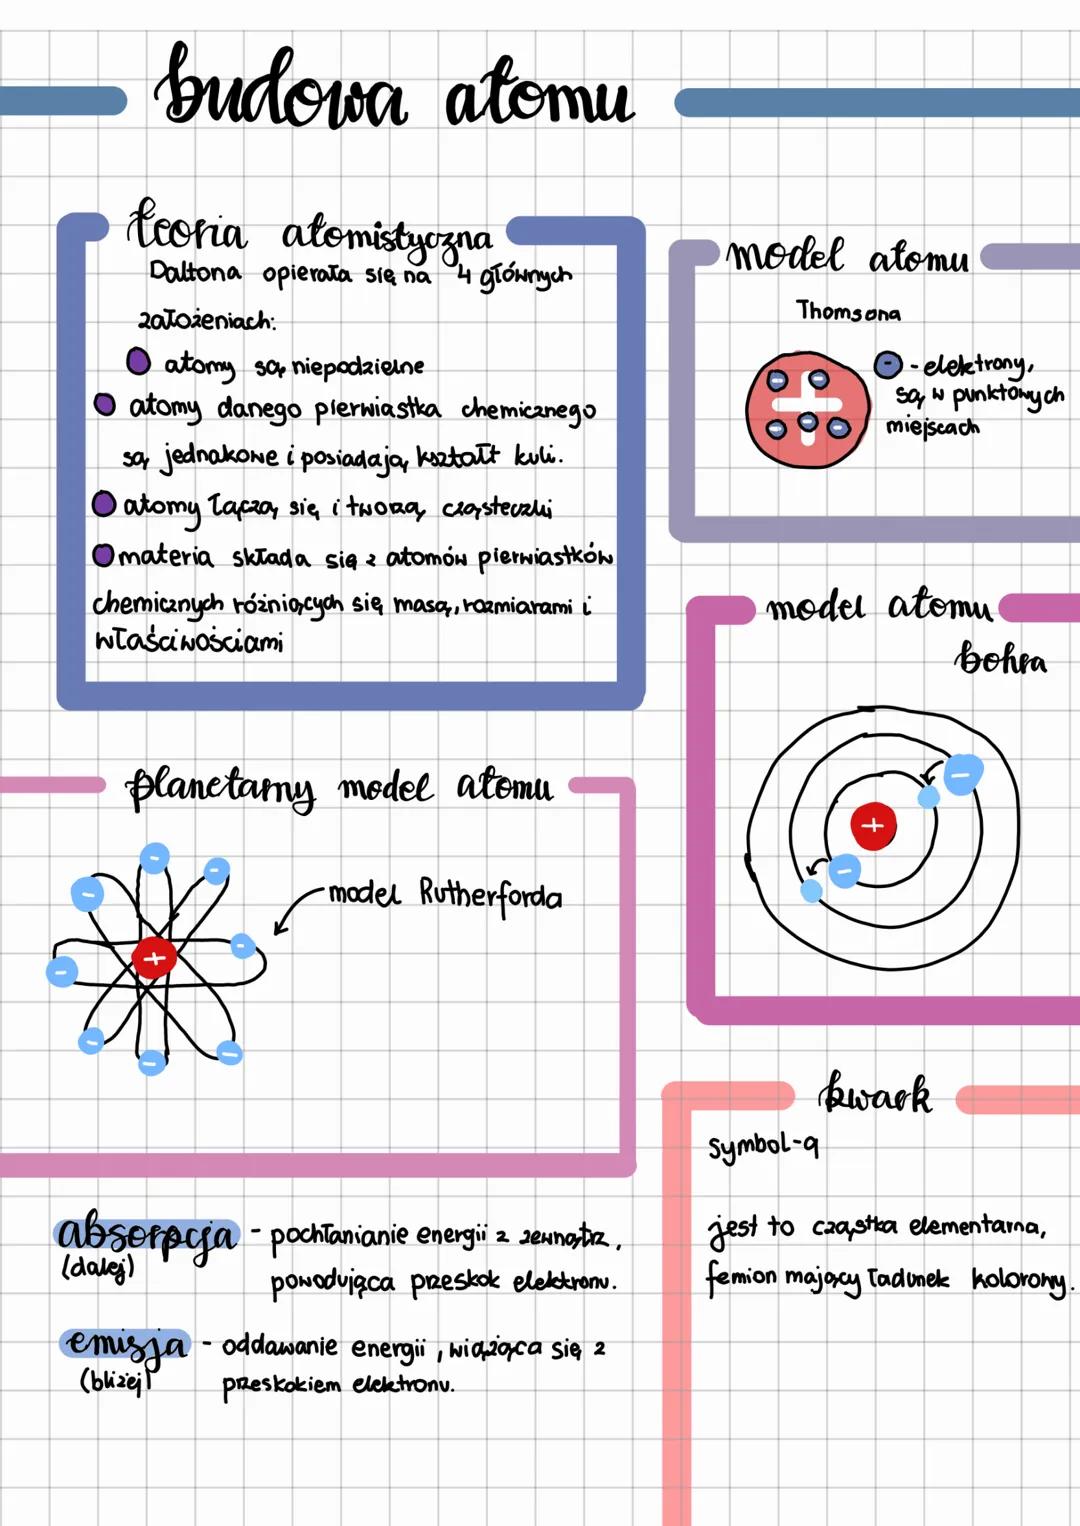 budowa atomu
teoria atomistyczna
Daltona opierała się na 4 głównych
założeniach:
atomy są niepodzielne
atomy danego pierwiastka chemicznego
są jednakowe i posiadają kształt kuli.
atomy łączą się i tworzą cząsteczki
materia składa się z atomów pierwiastków
chemicznych różniących się masą, rozmiarami i
właściwościami
model atomu
Thomsona
- elektrony,
są w punktowych
miejscach
model atomu
bohra
planetarny model atomu
model Rutherforda
absorpcja - pochłanianie energii z zewnątrz,
(dalej)
powodująca przeskok elektronu.
emisja - oddawanie energii, wiążąca się z
(bliżej)
przeskokiem elektronu.
kwark
symbol-q
jest to cząstka elementarna,
femion mający ładunek kolorowy.